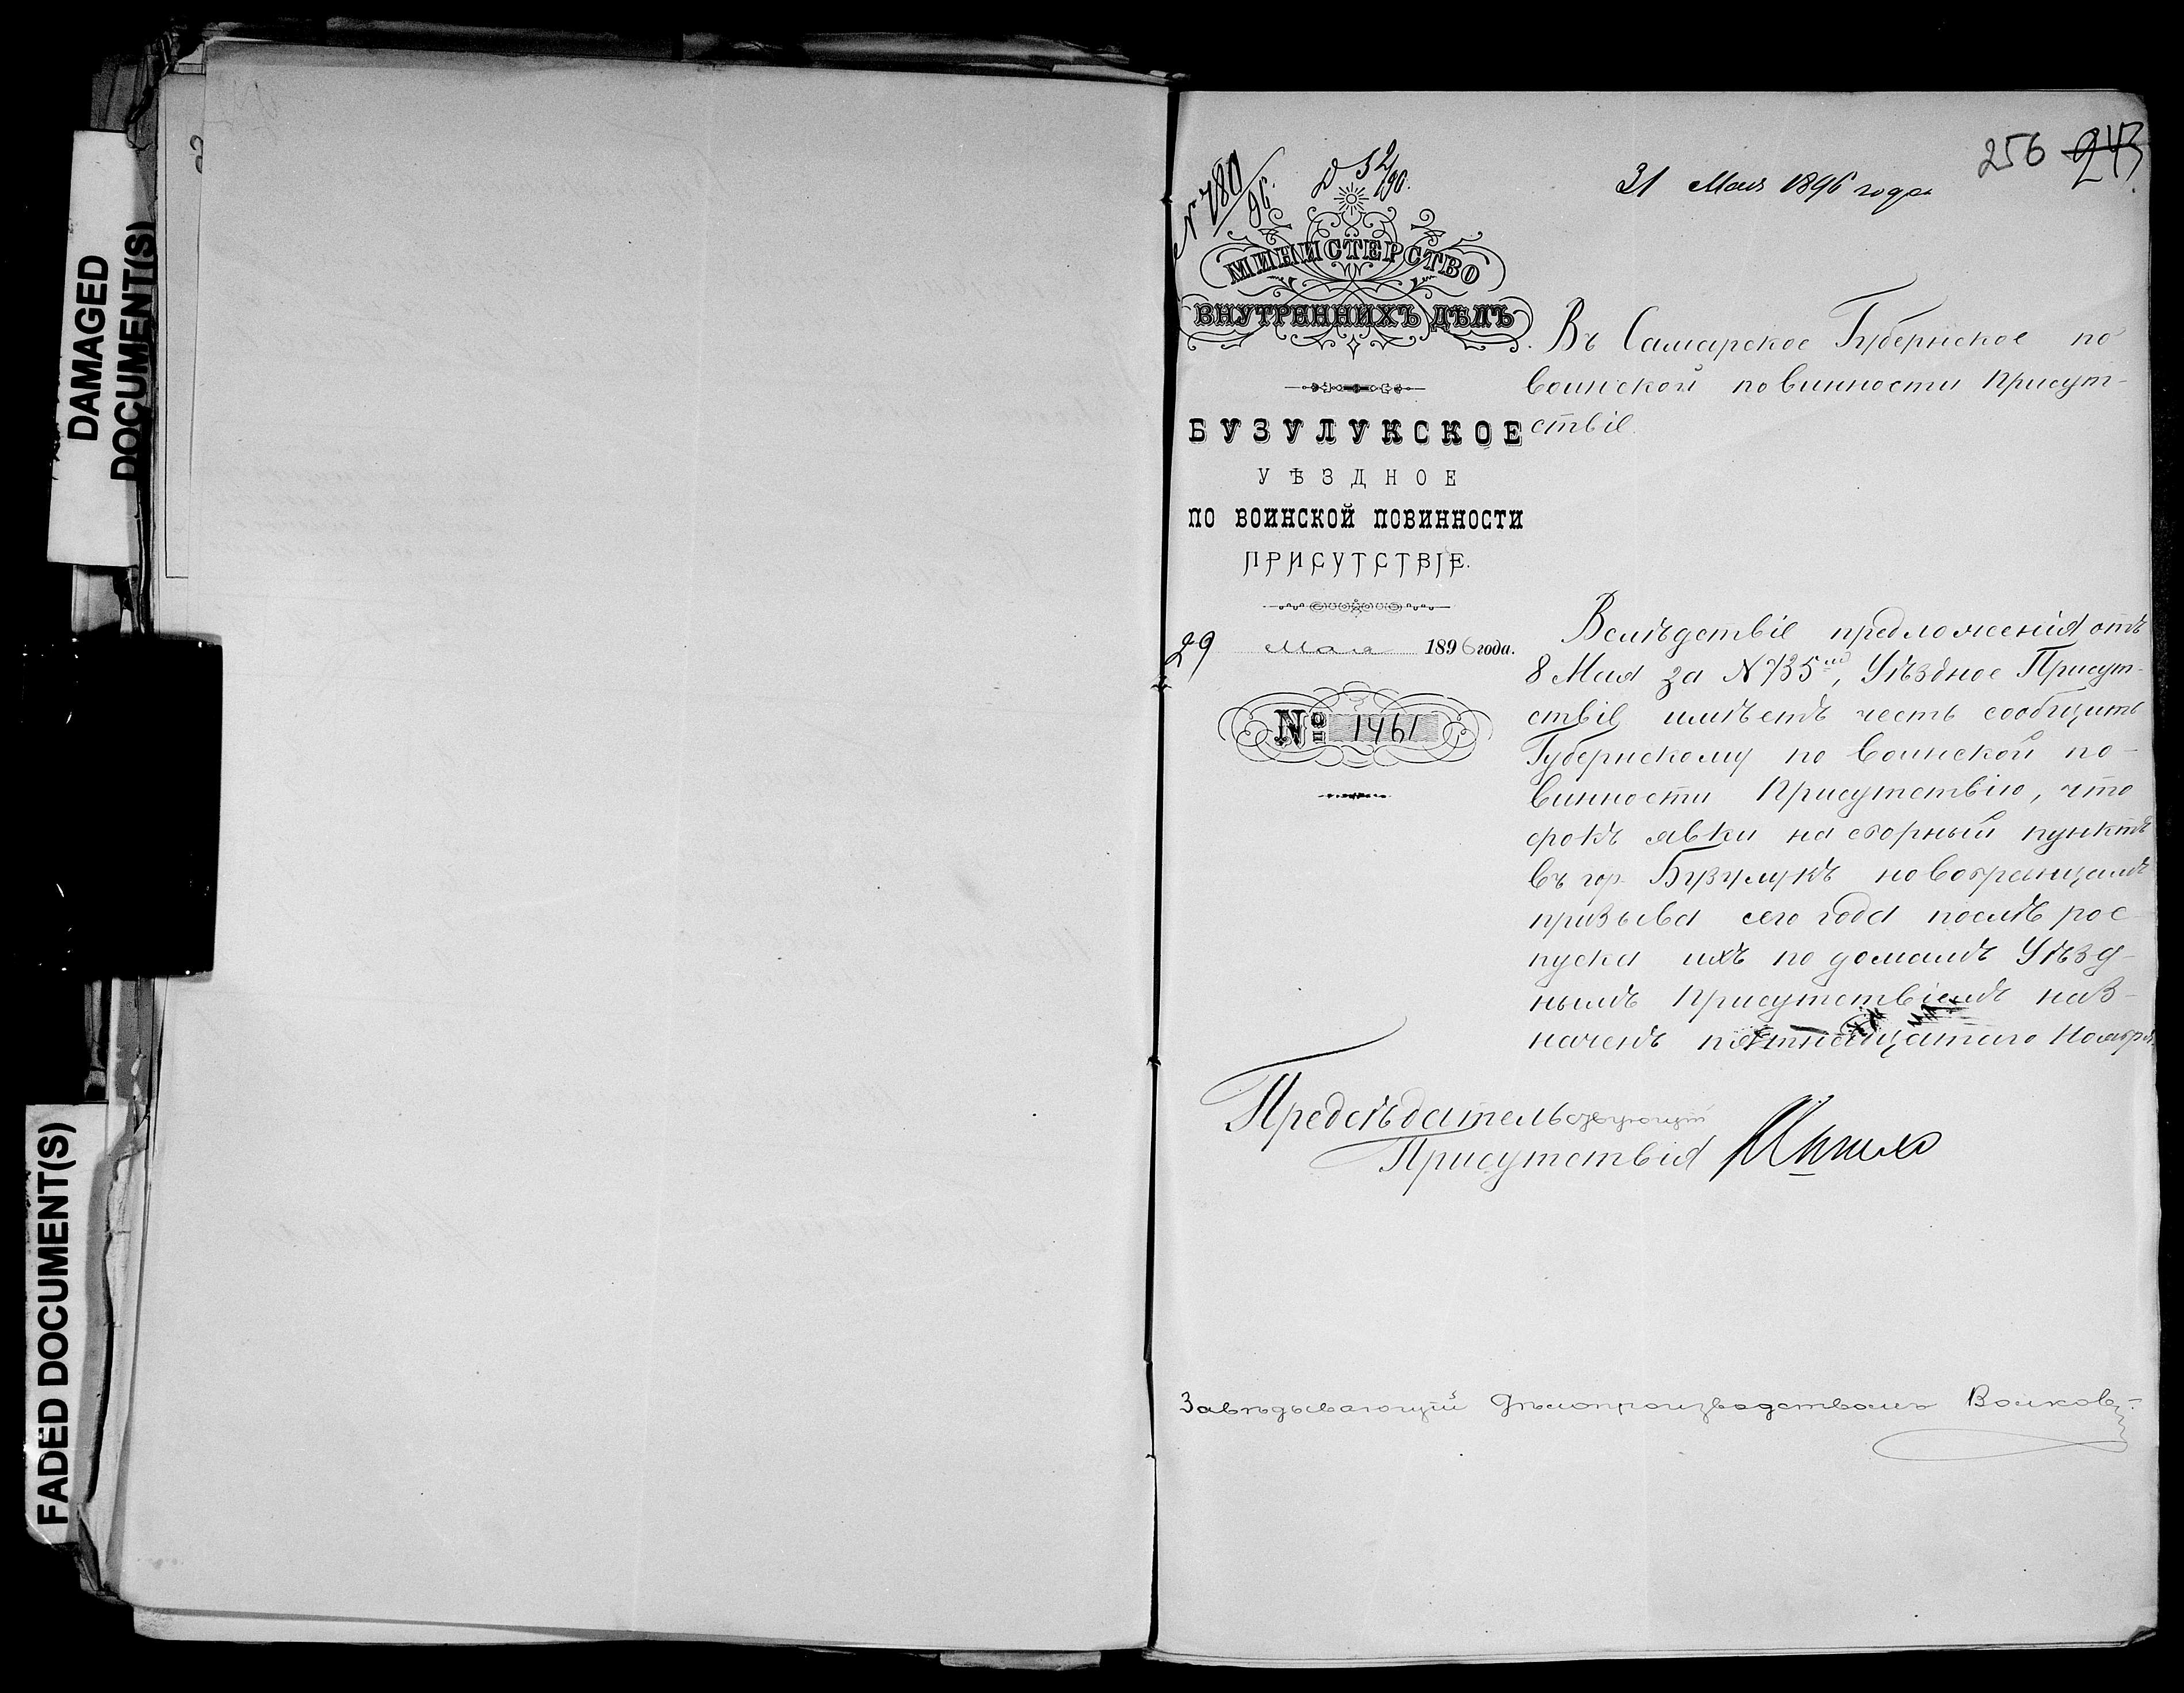 DAMAGED
DOCUMENT(S)
FADED DOCUMENT(S)
256 243
31 Мая 1896 года
№ 780/96.
МИНИСТЕРСТВО
ВНУТРЕННИХЪ ДѢЛЪ
БУЗУЛУКСКОЕ
УѢЗДНОЕ
ПО ВОИНСКОЙ ПОВИННОСТИ
ПРИСУТСТВІЕ.
29 мая 1896 года.
№ 1461
Въ Самарское Губернское по
воинской повинности Присут-
ствіе
Вслѣдствіе предложенія отъ
8 Мая за № 735, Уѣздное Присут-
ствіе имѣетъ честь сообщить
Губернскому по воинской по-
винности Присутствію, что
срокъ явки на сборный пунктъ
въ гор. Бузулукъ новобранцамъ
призыва сего года послѣ рос-
пуска ихъ по домамъ Уѣзд-
нымъ Присутствіемъ наз-
наченъ пятнадцатаго Ноября.
Предсѣдательствующій
Присутствія
Завѣдывающій дѣлопроизводствомъ Волковъ